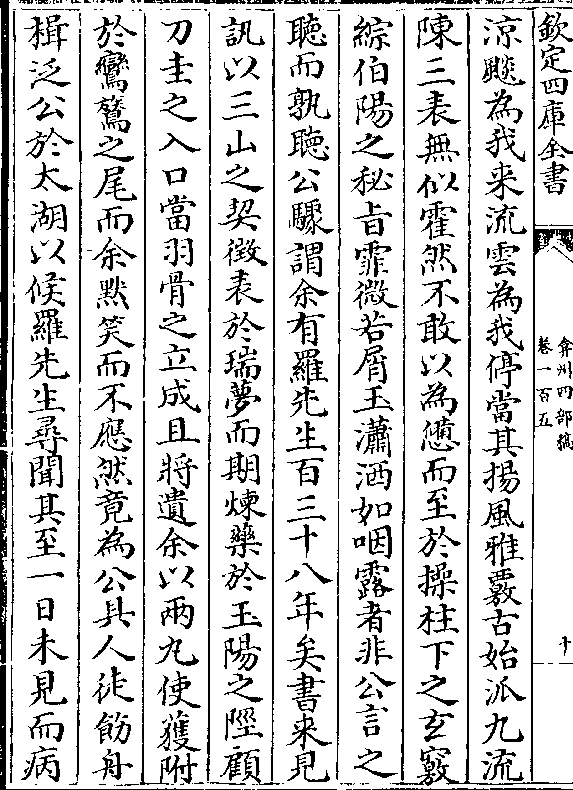 欽定四庫全書
弇州四部稿
卷一百五
十
涼颷為我来流雲為我停當其揚風雅覈古始派九流
陳三表無似霍然不敢以為憊而至於操柱下之玄竅
綜伯陽之秘㫖霏微若屑玉瀟洒如咽露者非公言之
聴而孰聴公驟謂余有羅先生百三十八年矣書来見
訊以三山之契徴表於瑞夢而期煉藥於玉陽之陘顧
刀圭之入口當羽骨之立成且將遺余以兩丸使獲附
於鸞鶖之尾而余黙笑而不應然竟為公具人徒飭舟
楫泛公於太湖以候羅先生尋聞其至一日未見而病